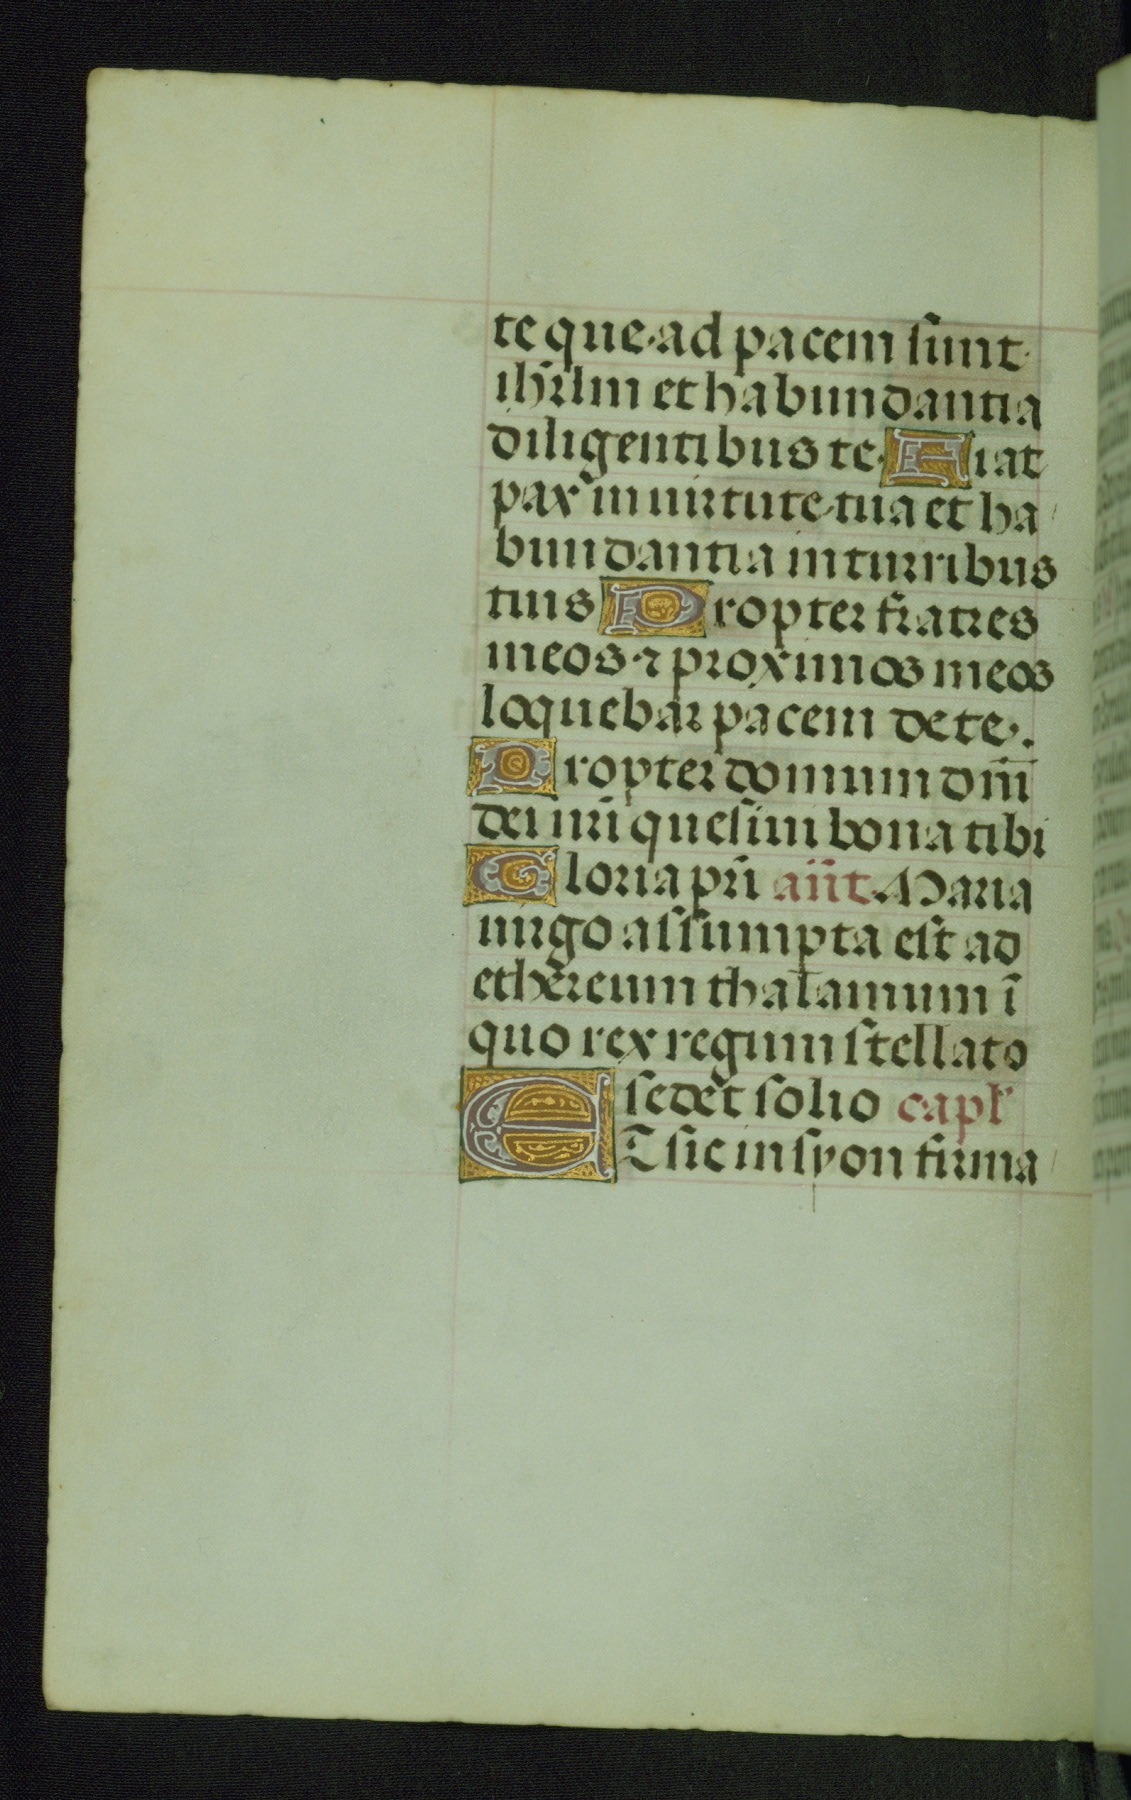 te que ad pacem sunt
ihr̄lm et habundantia
diligentibus te. Fiat
pax in uirtute tua et ha
bundantia in turribus
tuis Propter fratres
meos ⁊ proximos meos
loquebar pacem de te.
Propter domum dn̄i
dei nr̄i quesiui bona tibi
Gloria pr̄i ān̄t. Maria
uirgo assumpta est ad
ethereum thalamum ī
quo rex regum stellato
sedet solio capl'
ET sic in syon firma